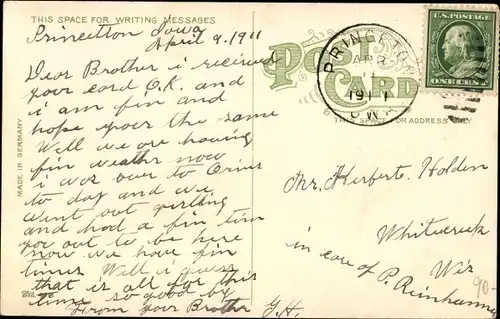 THIS SPACE FOR WRITING MESSAGES
Princetton Iowa
April 9. 1911
Dear Brother i received
your card O.K. and
i am fin and
hope your the same
Well we are having
fin weathr now
i was over to Orins
to day and we
went out
and had a fin tim
you out to be here
now we have fin
times Well i guess
that is all for this
time so good by
From your Brother G.H.
MADE IN GERMANY
POST CARD
THIS SPACE FOR ADDRESS ONLY
PRINCETON
APR
1911
IOWA
U.S. POSTAGE
ONE CENT
Mr. Herbert Holden
Whitecreek
Wis
in care of P. Reinhamm
90-